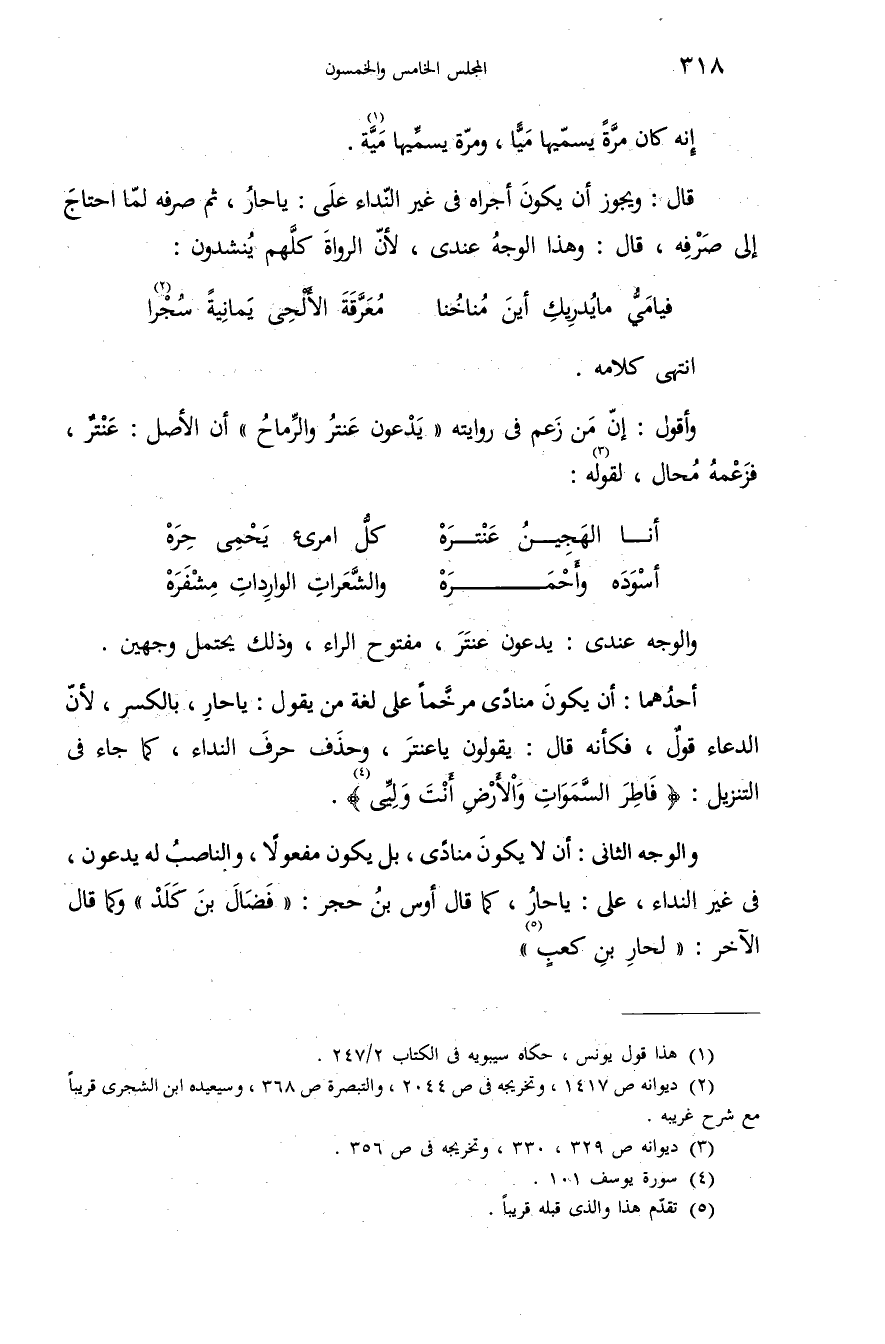 ٣١٨ المجلس الخامس والخمسون
إنه كان مرَّةً يسمّيها مَيًّا ، ومرّة يسمِّيها مَيَّة (١) .
قال : ويجوز أن يكونَ أجراه فى غير النّداء علَى : ياحارُ ، ثم صرفه لمّا احتاجَ
إلى صَرْفِه ، قال : وهذا الوجهُ عندى ، لأنّ الرواةَ كلَّهم يُنشدون :
فيامَيُّ مايُدرِيكِ أينَ مُناخُنا مُعَرَّقَةَ الأَلْحِى يَمانِيةً سُجْرا (٢)
انتهى كلامه .
وأقول : إنّ مَن زَعم فى روايته « يَدْعون عَنترُ والرِّماحُ » أن الأصل : عَنْترٌ ،
فزَعْمهُ مُحال ، لقوله (٣) :
أنـــا الهَجِيـــنُ عَنْتـــرَهْ كلُّ امرىءٍ يَحْمِى حِرَهْ
أسْوَدَه وأَحْمَـــــــرَهْ والشَّعَراتِ الوارِداتِ مِشْفَرَهْ
والوجه عندى : يدعون عنتَرَ ، مفتوح الراء ، وذلك يحتمل وجهين .
أحدُهما : أن يكونَ منادًى مرخَّماً على لغة من يقول : ياحارِ ، بالكسر ، لأنّ
الدعاء قولٌ ، فكأنه قال : يقولون ياعنترَ ، وحذَف حرفَ النداء ، كما جاء فى
التنزيل : ﴿ فَاطِرَ السَّمَوَاتِ وَالْأَرْضِ أَنْتَ وَلِيِّى (٤) ﴾ .
والوجه الثانى : أن لا يكونَ منادًى ، بل يكون مفعولًا ، والناصبُ له يدعون ،
فى غير النداء ، على : ياحارُ ، كما قال أوس بنُ حجر : « فَضالَ بنَ كَلَدْ » وكما قال
الآخر : « لحارِ بنِ كعبٍ (٥) »
(١) هذا قول يونس ، حكاه سيبويه فى الكتاب ٢٤٧/٢ .
(٢) ديوانه ص ١٤١٧ ، وتخريجه فى ص ٢٠٤٤ ، والتبصرة ص ٣٦٨ ، وسيعيده ابن الشجرى قريباً
مع شرح غريبه .
(٣) ديوانه ص ٣٢٩ ، ٣٣٠ ، وتخريجه فى ص ٣٥٦ .
(٤) سورة يوسف ١٠١ .
(٥) تقدّم هذا والذى قبله قريباً .